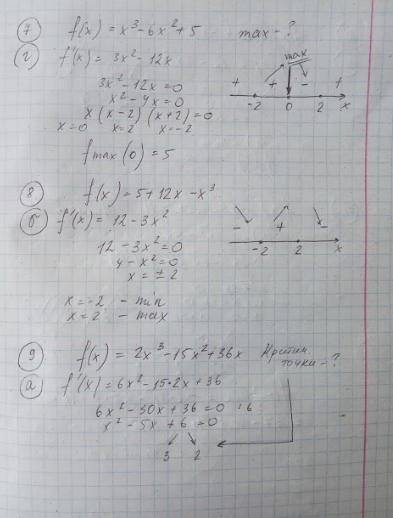 7 f(x) = x³ - 6x² + 5 max - ?
г f'(x) = 3x² - 12x
3x² - 12x = 0
x² - 4x = 0
x (x - 2) (x + 2) = 0
x = 0 x = 2 x = -2
max
+ + - +
-2 0 2 x
fmax (0) = 5
8 f(x) = 5 + 12x - x³
б f'(x) = 12 - 3x²
- + -
-2 2 x
12 - 3x² = 0
4 - x² = 0
x = ± 2
x = -2 - min
x = 2 - max
9 f(x) = 2x³ - 15x² + 36x Критич.
точки - ?
а f'(x) = 6x² - 15·2x + 36
6x² - 30x + 36 = 0 :6
x² - 5x + 6 = 0
3 2